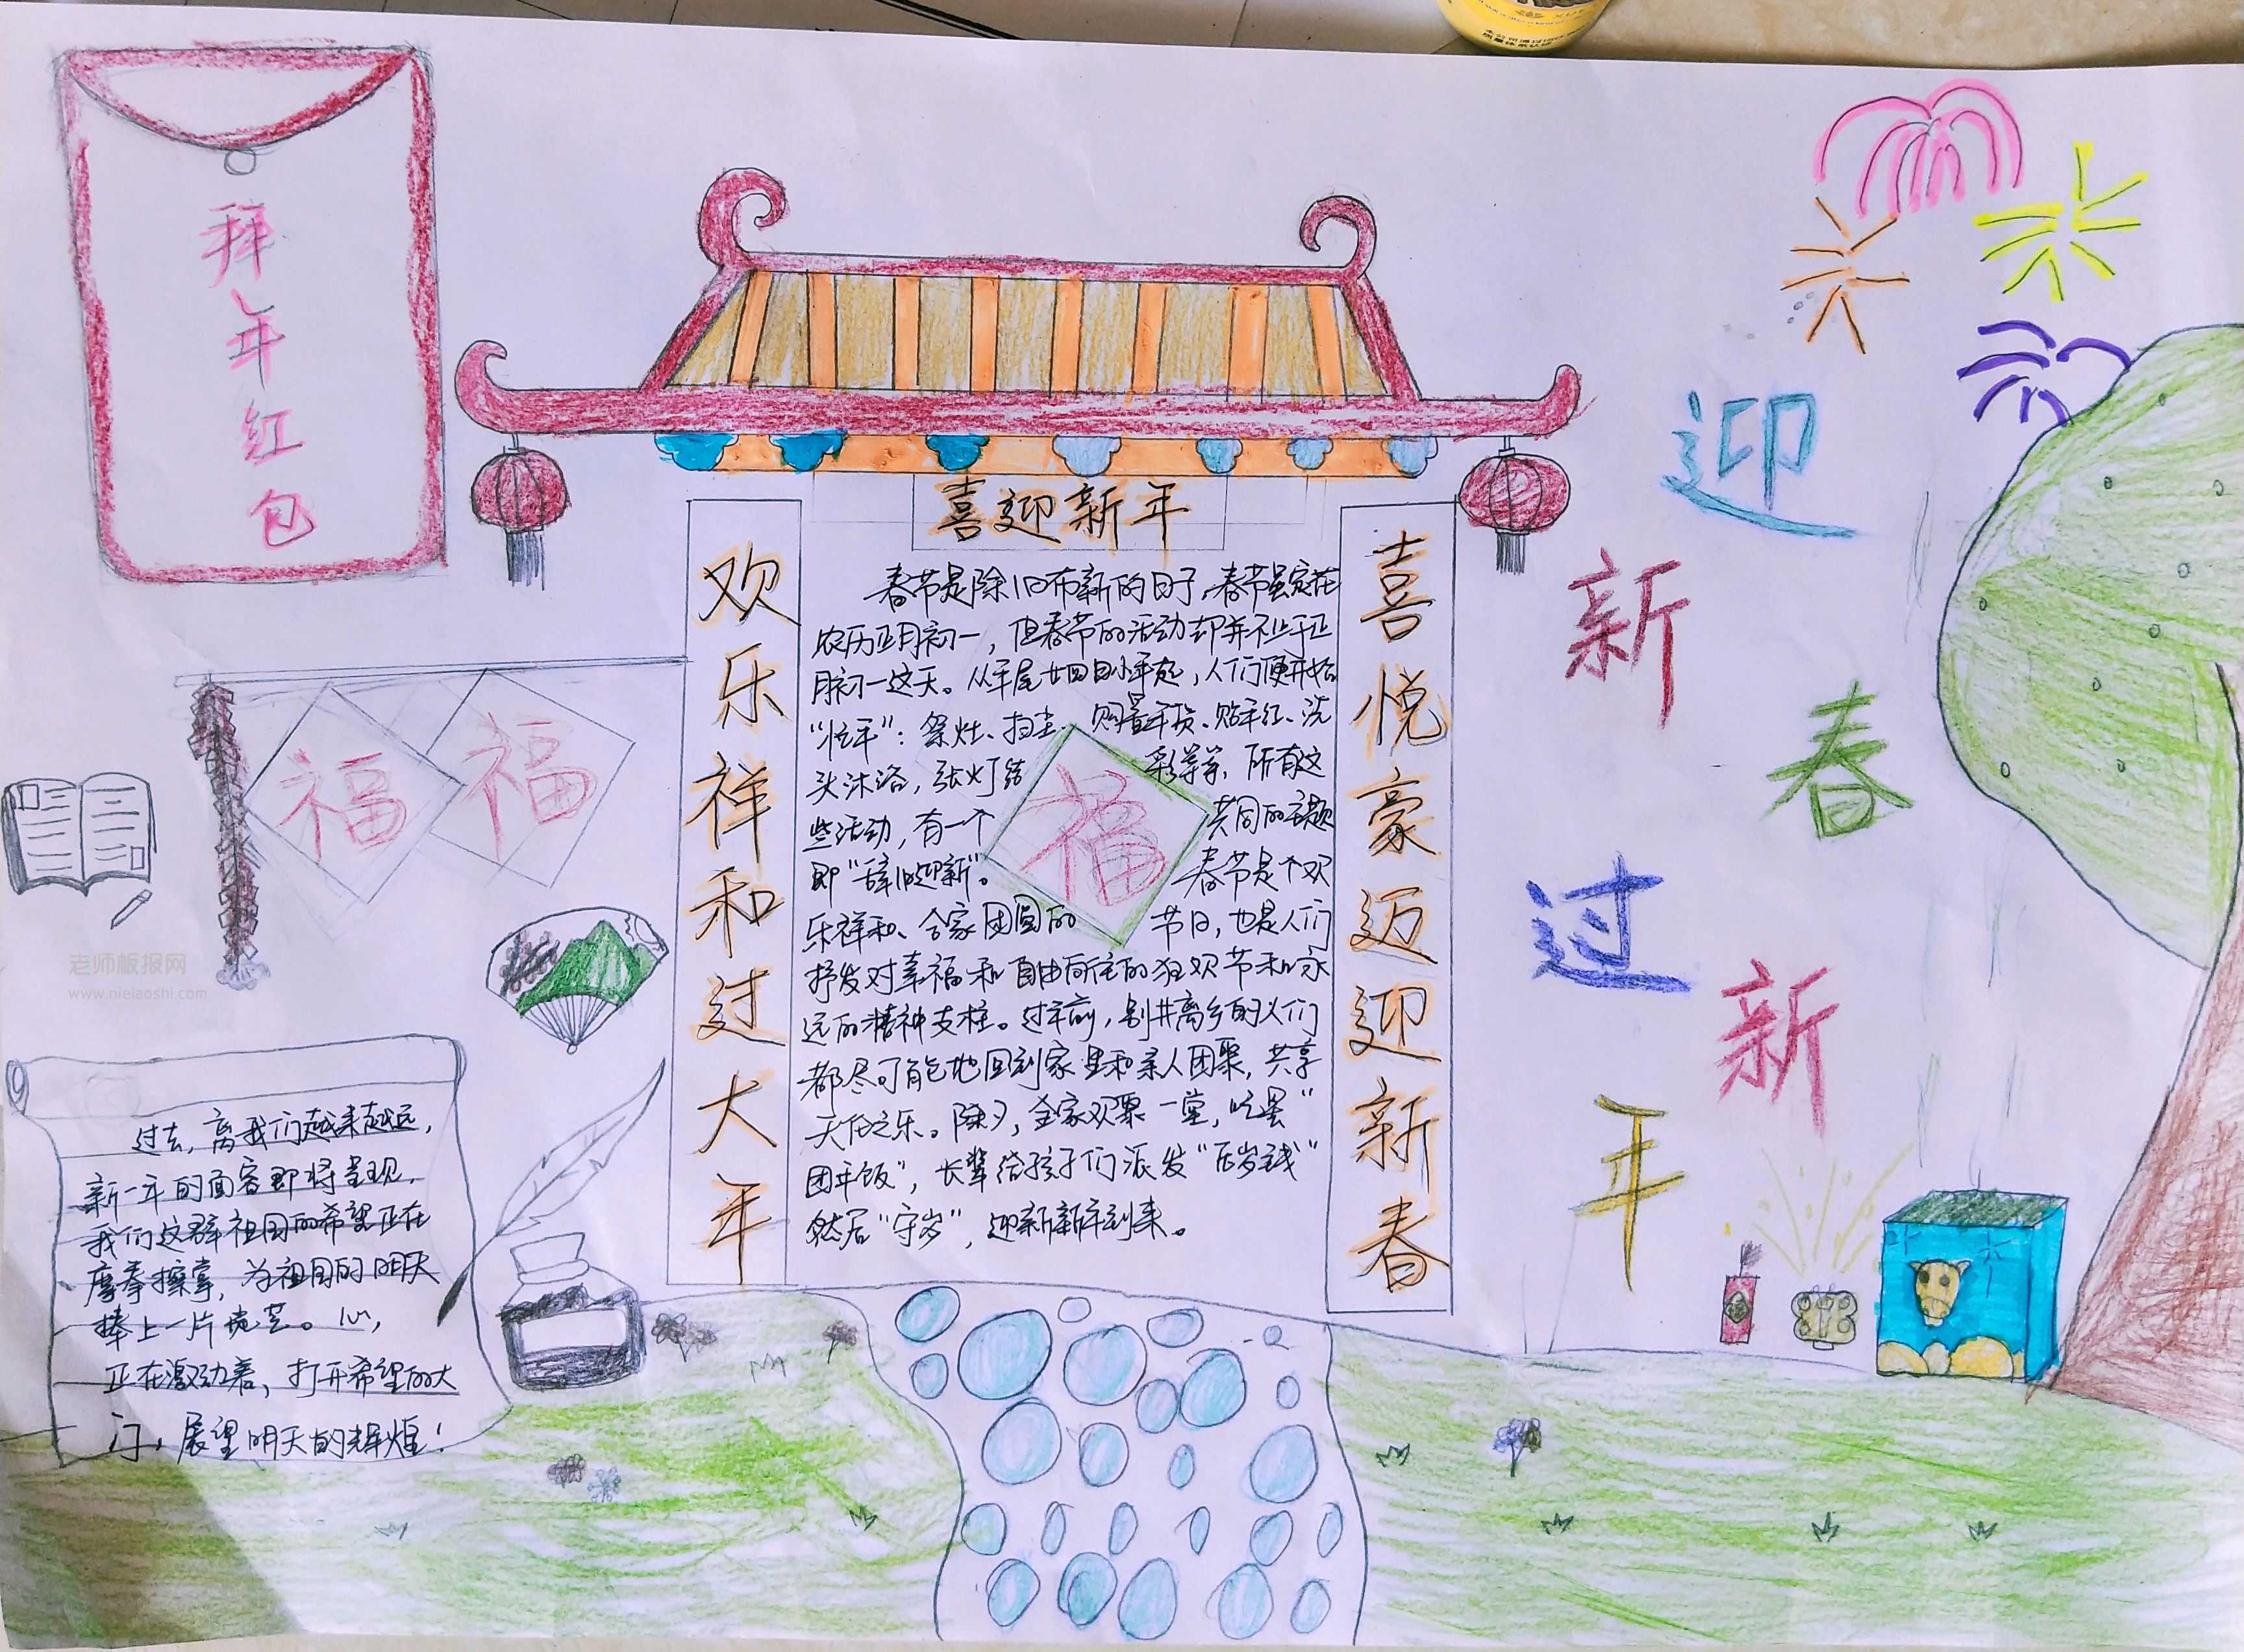 拜年红包
喜迎新年
欢乐祥和过大年
喜悦豪迈迎新春
春节是除旧布新的日子,春节虽定在
农历正月初一,但春节的活动却并不止于正
月初一这天。从年尾廿四日小年起,人们便开始
“忙年”:祭灶、扫尘、购置年货、贴年红、洗
头沐浴,张灯结彩等等,所有这
些活动,有一个共同的主题
即“辞旧迎新”。春节是个欢
乐祥和、合家团圆的节日,也是人们
抒发对幸福和自由向往的狂欢节和永
远的精神支柱。过年前,别井离乡的人们
都尽可能地回到家里和亲人团聚,共享
天伦之乐。除夕,全家欢聚一堂,吃罢“
团年饭”,长辈给孩子们派发“压岁钱”
然后“守岁”,迎新新年到来。
福
福
福
迎
新
春
过
新
年
过去,离我们越来越远,
新一年的面容即将呈现,
我们这群祖国的希望正在
摩拳擦掌,为祖国的明天
捧上一片 。心,
正在激动着,打开希望的大
门,展望明天的辉煌!
老师板报网
www.nielaoshi.com
福